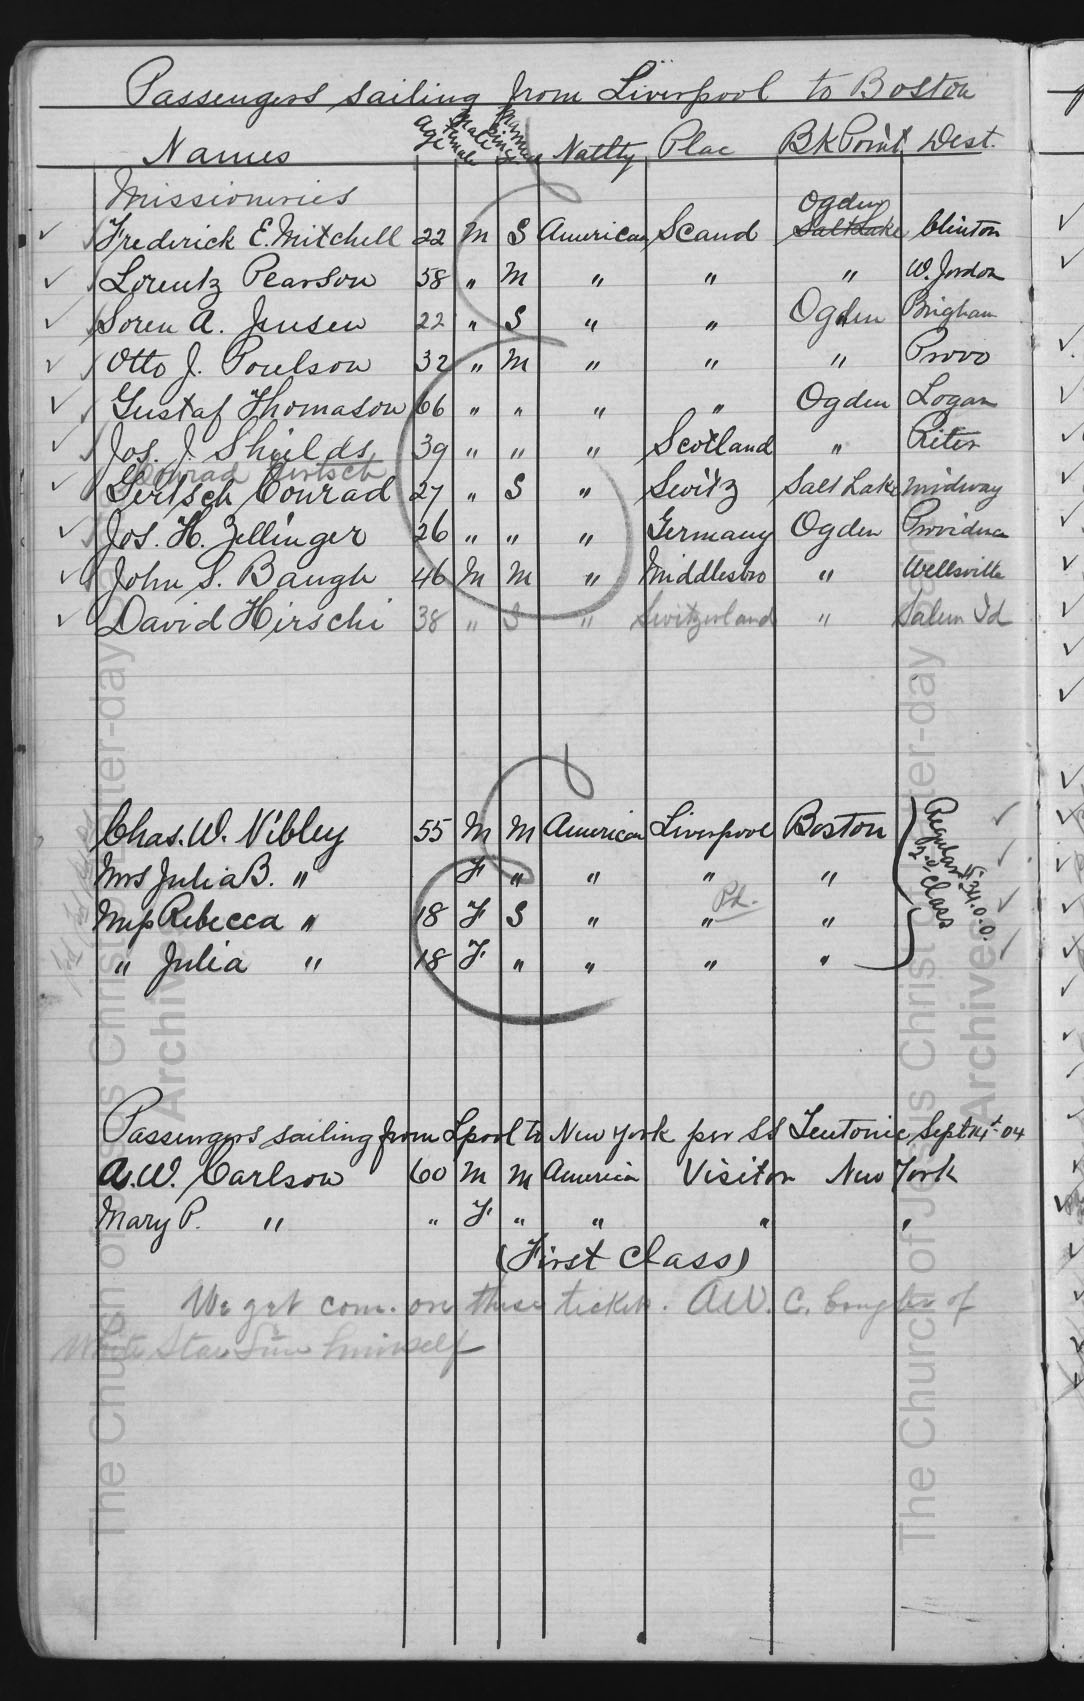 Passengers sailing from Liverpool to Boston
Names Age Male Female Married Single Natlty Plac Bk Point Dest.
Missioneries
Frederick E. Mitchell 22 M S American Scand Ogden Salt Lake Clinton
Lorentz Pearson 58 " M " " " W. Jordon
Soren A. Jensen 22 " S " " Ogden Brigham
Otto J. Poulson 32 " M " " " Provo
Gustaf Thomason 66 " " " " Ogden Logan
Jos. J. Shields 39 " " " Scotland "
Conrad Gertsch
Gertsch Conrad 27 " S " Switz Salt Lake Midway
Jos. H. Zellinger 26 " " " Germany Ogden Providence
John S. Baugh 46 M M " Middlesbro " Wellsville
David Hirschi 38 " S " Switzerland " Salem Id
Chas. W. Nibley 55 M M American Liverpool Boston
Mrs Julia B. " F " " " "
Miss Rebecca " 18 F S " " Pd. "
" Julia " 18 F " " " "
Regular 2d Class £34.0.0.
Passengers sailing from Lpool to New York per SS Teutonic Sept 14th-04
A.W. Carlson 60 M M America Visitor New York
Mary P. " " F " " " "
(First Class)
We get com. on these tickets. A.W.C. bought of
White Star Line himself
The Church of Jesus Christ of Latter-day Saints
Archives
The Church of Jesus Christ of Latter-day Saints
Archives